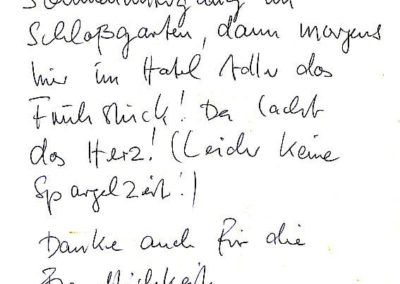 Schloßgarten, dann morgens
hier im Hotel Adler das
Frühstück! Da lacht
das Herz! (Leider keine
Spargelzeit!)
Danke auch für die